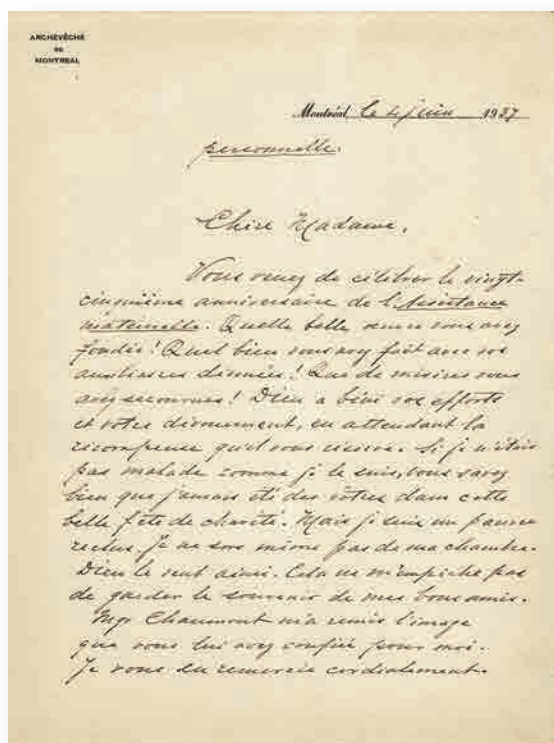 ARCHEVÊCHÉ
DE
MONTRÉAL
Montréal, le 4 juin 1937
personnelle.
Chère Madame,
Vous venez de célébrer le vingt-
cinquième anniversaire de l'Assistance
maternelle. Quelle belle œuvre vous avez
fondée! Quel bien vous avez fait avec vos
auxiliaires dévouées! Que de misères vous
avez secourues! Dieu a béni vos efforts
et votre dévouement, en attendant la
récompense qu'il vous réserve. Si je n'étais
pas malade comme je le suis, vous savez
bien que j'aurais été des vôtres dans cette
belle fête de charité. Mais je suis un pauvre
reclus. Je ne sors même pas de ma chambre.
Dieu le veut ainsi. Cela ne m'empêche pas
de garder le souvenir de mes bons amis.
Mgr Chaumont m'a remis l'image
que vous lui avez confiée pour moi.
Je vous en remercie cordialement.